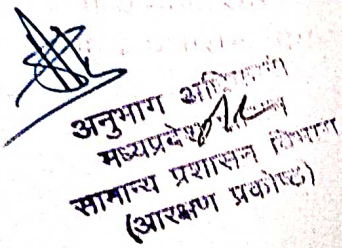 अनुभाग
मध्यप्रदेश
सामान्य प्रशासन विभाग
(आरक्षण प्रकोष्ठ)